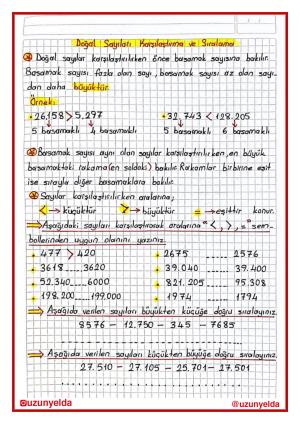 Doğal Sayıları Karşılaştırma ve Sıralama
Doğal sayılar karşılaştırılırken önce basamak sayısına bakılır.
Basamak sayısı fazla olan sayı, basamak sayısı az olan sayı-
dan daha büyüktür.
Örnek:
26.158 > 5.297 32.743 < 128.205
5 basamaklı 4 basamaklı 5 basamaklı 6 basamaklı
Basamak sayısı aynı olan sayılar karşılaştırılırken, en büyük
basamaktaki rakama (en soldaki) bakılır. Rakamlar birbirine eşit
ise sırayla diğer basamaklara bakılır.
Sayılar karşılaştırılırken aralarına;
< → küçüktür > → büyüktür = → eşittir konur.
Aşağıdaki sayıları karşılaştırarak aralarına "<, >, =" sem-
bollerinden uygun olanını yazınız.
477 > 420 2675 ...... 2576
3618 ..... 3620 39.040 ...... 39.400
52.340 ...... 6000 821.205 ...... 95.308
198.200 ...... 199.000 1974 ...... 1794
Aşağıda verilen sayıları büyükten küçüğe doğru sıralayınız.
8576 - 12.750 - 345 - 7685
Aşağıda verilen sayıları küçükten büyüğe doğru sıralayınız.
27.510 - 27.105 - 25.701 - 27.501
@uzunyelda @uzunyelda